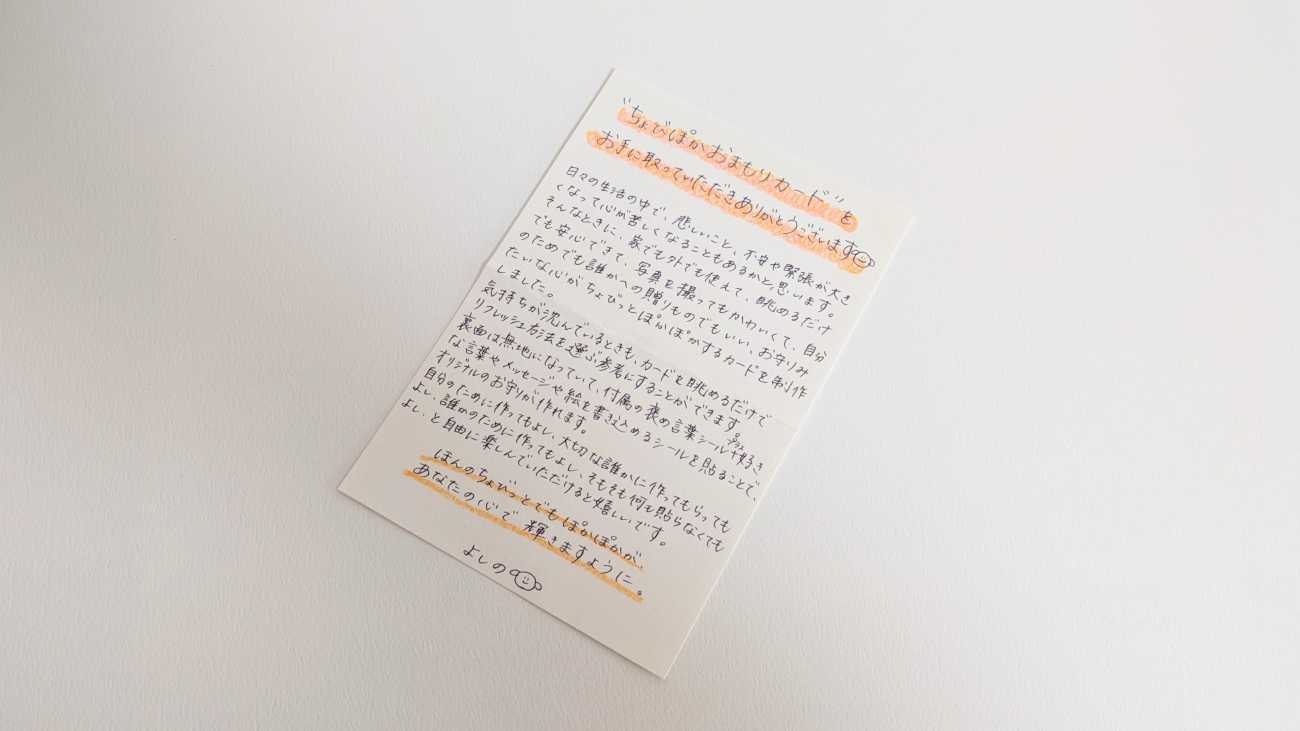 "ちょびぽかおまもりカード"を
お手に取っていただきありがとうございます
日々の生活の中で、悲しいこと、不安や緊張が大き
くなって心が苦しくなることもあるかと思います。
そんなときに、家でも外でも使えて、眺めるだけ
でも安心できて、写真を撮ってもかわいくて、自分
のためでも誰かへの贈りものでもいい、お守りみ
たいな心がちょびっとぽかぽかするカードを制作
しました。
気持ちが沈んでいるときも、カードを眺めるだけで
リフレッシュ方法を選ぶ参考にすることができます。
裏面は無地になっていて、付属の褒め言葉シール+好き
プラス
な言葉やメッセージや絵を書き込めるシールを貼ることで、
オリジナルのお守りが作れます。
自分のために作ってもよし、大切な誰かに作ってもらっても
よし、誰かのために作ってもよし、そもそも何も貼らなくても
よし、と自由に楽しんでいただけると嬉しいです。
ほんのちょびっとでもぽかぽかが、
あなたの心で輝きますように。
よしの